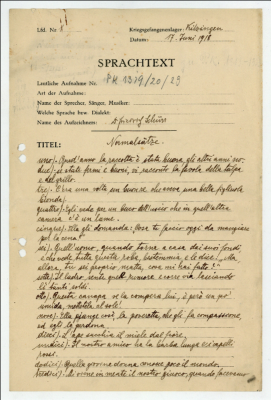 Lfd. Nr. 1
Kriegsgefangenenlager: Kissingen
Datum: 17. Juni 1918
SPRACHTEXT
Lautliche Aufnahme Nr. PK 1319/20/23
Art der Aufnahme:
Name der Sprecher, Sänger, Musiker:
Welche Sprache bzw. Dialekt:
Name des Aufnehmers:
TITEL: Normalsätze.
uno). Quest'anno la raccolta è stata buona, gli altri anni no
due). state fermi e buoni, vi racconto la favola della talpa
e del grillo
tre). C'era una volta un che aveva una bella figliola
bionda.
quattro). Egli vede per un buco dell'uscio che in quell'altra
camera c'è un lume.
cinque). Ella gli domanda: cosa ti faccio oggi da mangiare
per la cena?
sei). Quell'uomo, quando torna a casa dai suoi fondi
e che vede tutta questa roba, bestemmia, e le dice: Ma
allora tu sei proprio matta, cosa mi hai fatto?
sette). Il ladro sente quel rumore e corre via lasciando
lì tutti i soldi.
otto). Questa canapa se la compera lui, è però un po'
umida, mettetela al sole!
nove). Ella piange così, la poveretta, che gli fa compassione,
ed egli la perdona.
dieci). L'ape succhia il miele dal fiore.
undici). Il nostro amico ha la barba lunga e i capelli
rossi.
dodici). Quella giovane donna conosce poco il mondo.
tredici). mi viene in mente il nostro giuoco, quando facevamo